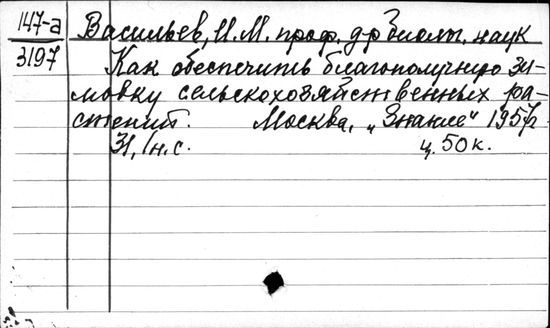 147-а
3197
Васильев, И. М. проф. д-р биолы. наук
Как обеспечить благополучную зи-
мовку сельскохозяйственных ра-
стений. Москва, „Знание" 1957г.
31, 1н. с. ц. 50к.